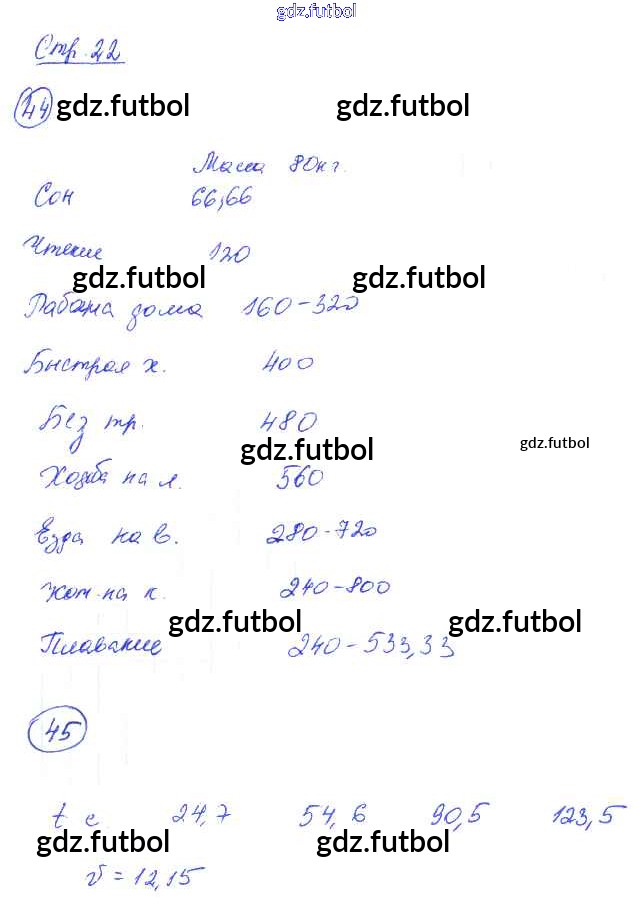 gdz.futbol
Стр. 22
44 gdz.futbol gdz.futbol
Масса 80кг.
Сон 66,66
Чтение 120
gdz.futbol gdz.futbol
Работа дома 160-320
Быстрая х. 400
Без тр. 480
gdz.futbol gdz.futbol
Ходьба на л. 560
Езда на в. 280-720
на к. 240-800
gdz.futbol gdz.futbol
Плавание 240-533,33
45
t с 24,7 54,6 90,5 123,5
gdz.futbol gdz.futbol
v = 12,15